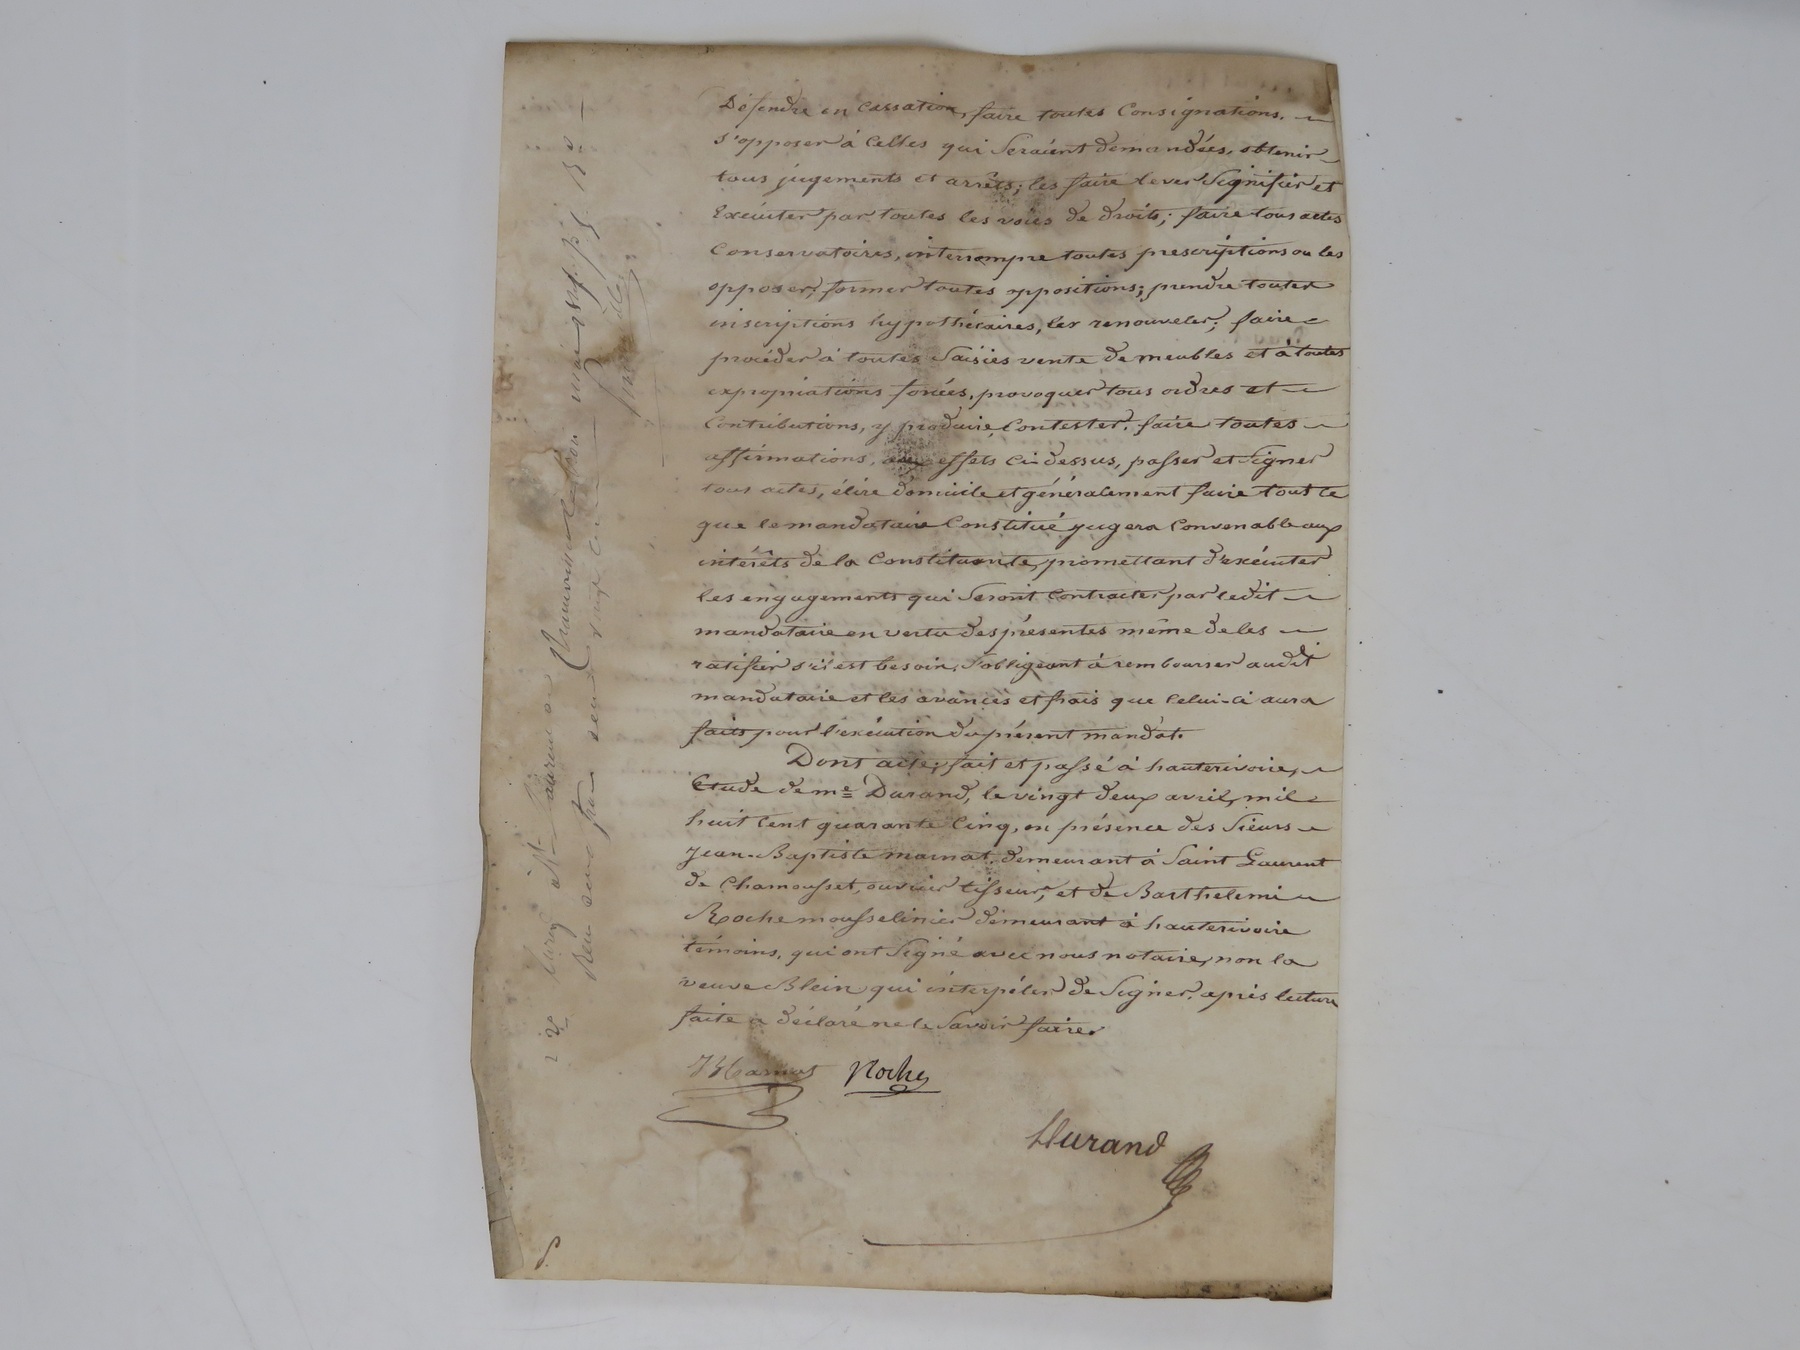 Défendre en Cassation, faire toutes Consignations.
S'opposer à Celles qui Seraient demandées, obtenir
tous jugements et arrêts; les faire lever Signifier et
Exécuter par toutes les voies de droits; faire tous actes
Conservatoires, interrompre toutes prescriptions ou les
opposer; former toutes oppositions; prendre toutes
inscriptions hypothécaires, les renouveler; faire
procéder à toutes Saisies vente de meubles et à toutes
expropriations forcées, provoquer tous ordres et
Contributions, y produire, Contester. faire toutes
affirmations, aux effets Ci-dessus, passer et Signer
tous actes, élire domicile et généralement faire tout ce
que le mandataire Constitué jugera Convenable aux
intérêts de la Constituante, promettant d'exécuter
les engagements qui Seront Contractés par ledit
mandataire en vertu des présentes même de les
ratifier s'il est besoin, S'obligeant à rembourser audit
mandataire et les avances et frais que Celui-Ci aura
faits pour l'exécution du présent mandat.
Dont acte, fait et passé à hauterivoire,
Etude de me Durand, le vingt deux avril, mil
huit Cent quarante Cinq, en présence des Sieurs
Jean-Baptiste marnat, demeurant à Saint Laurent
de Chamousset, ouvrier tisseur, et de Barthelemi
Roche mousselinier demeurant à hauterivoire
témoins, qui ont Signé avec nous notaire, non la
veuve Blein qui interpéler de Signer, après lecture
faite a déclaré ne le Savoir faire.
Roche
Durand